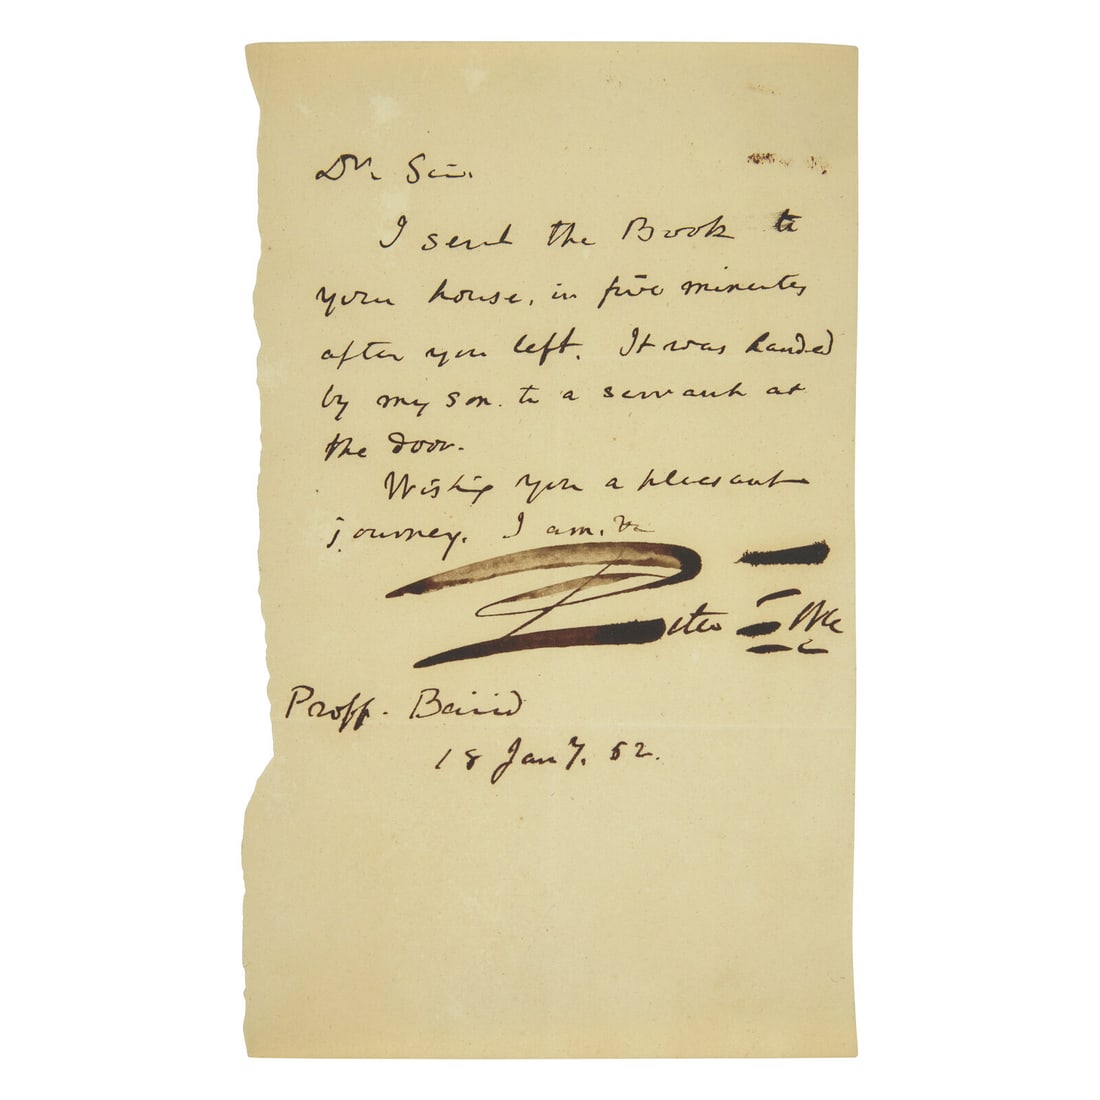 Dr. Sir.
I sent the Book to
your house, in five minutes
after you left. It was handed
by my son. to a servant at
the door.
Wishing you a pleasant
journey. I am. &c
Peter
Proff. Baird
18 Jany. 52.